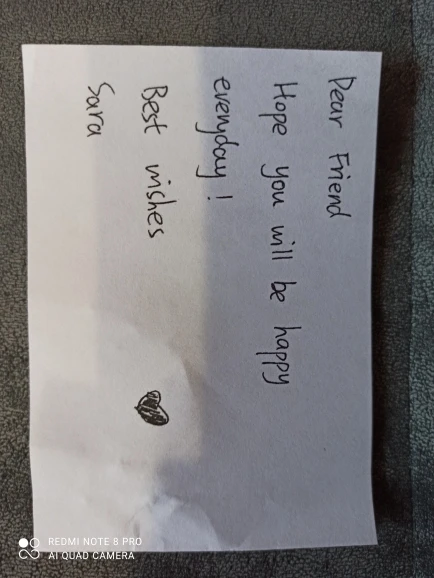 Dear Friend
Hope you will be happy
everyday!
Best wishes
Sara
REDMI NOTE 8 PRO
AI QUAD CAMERA